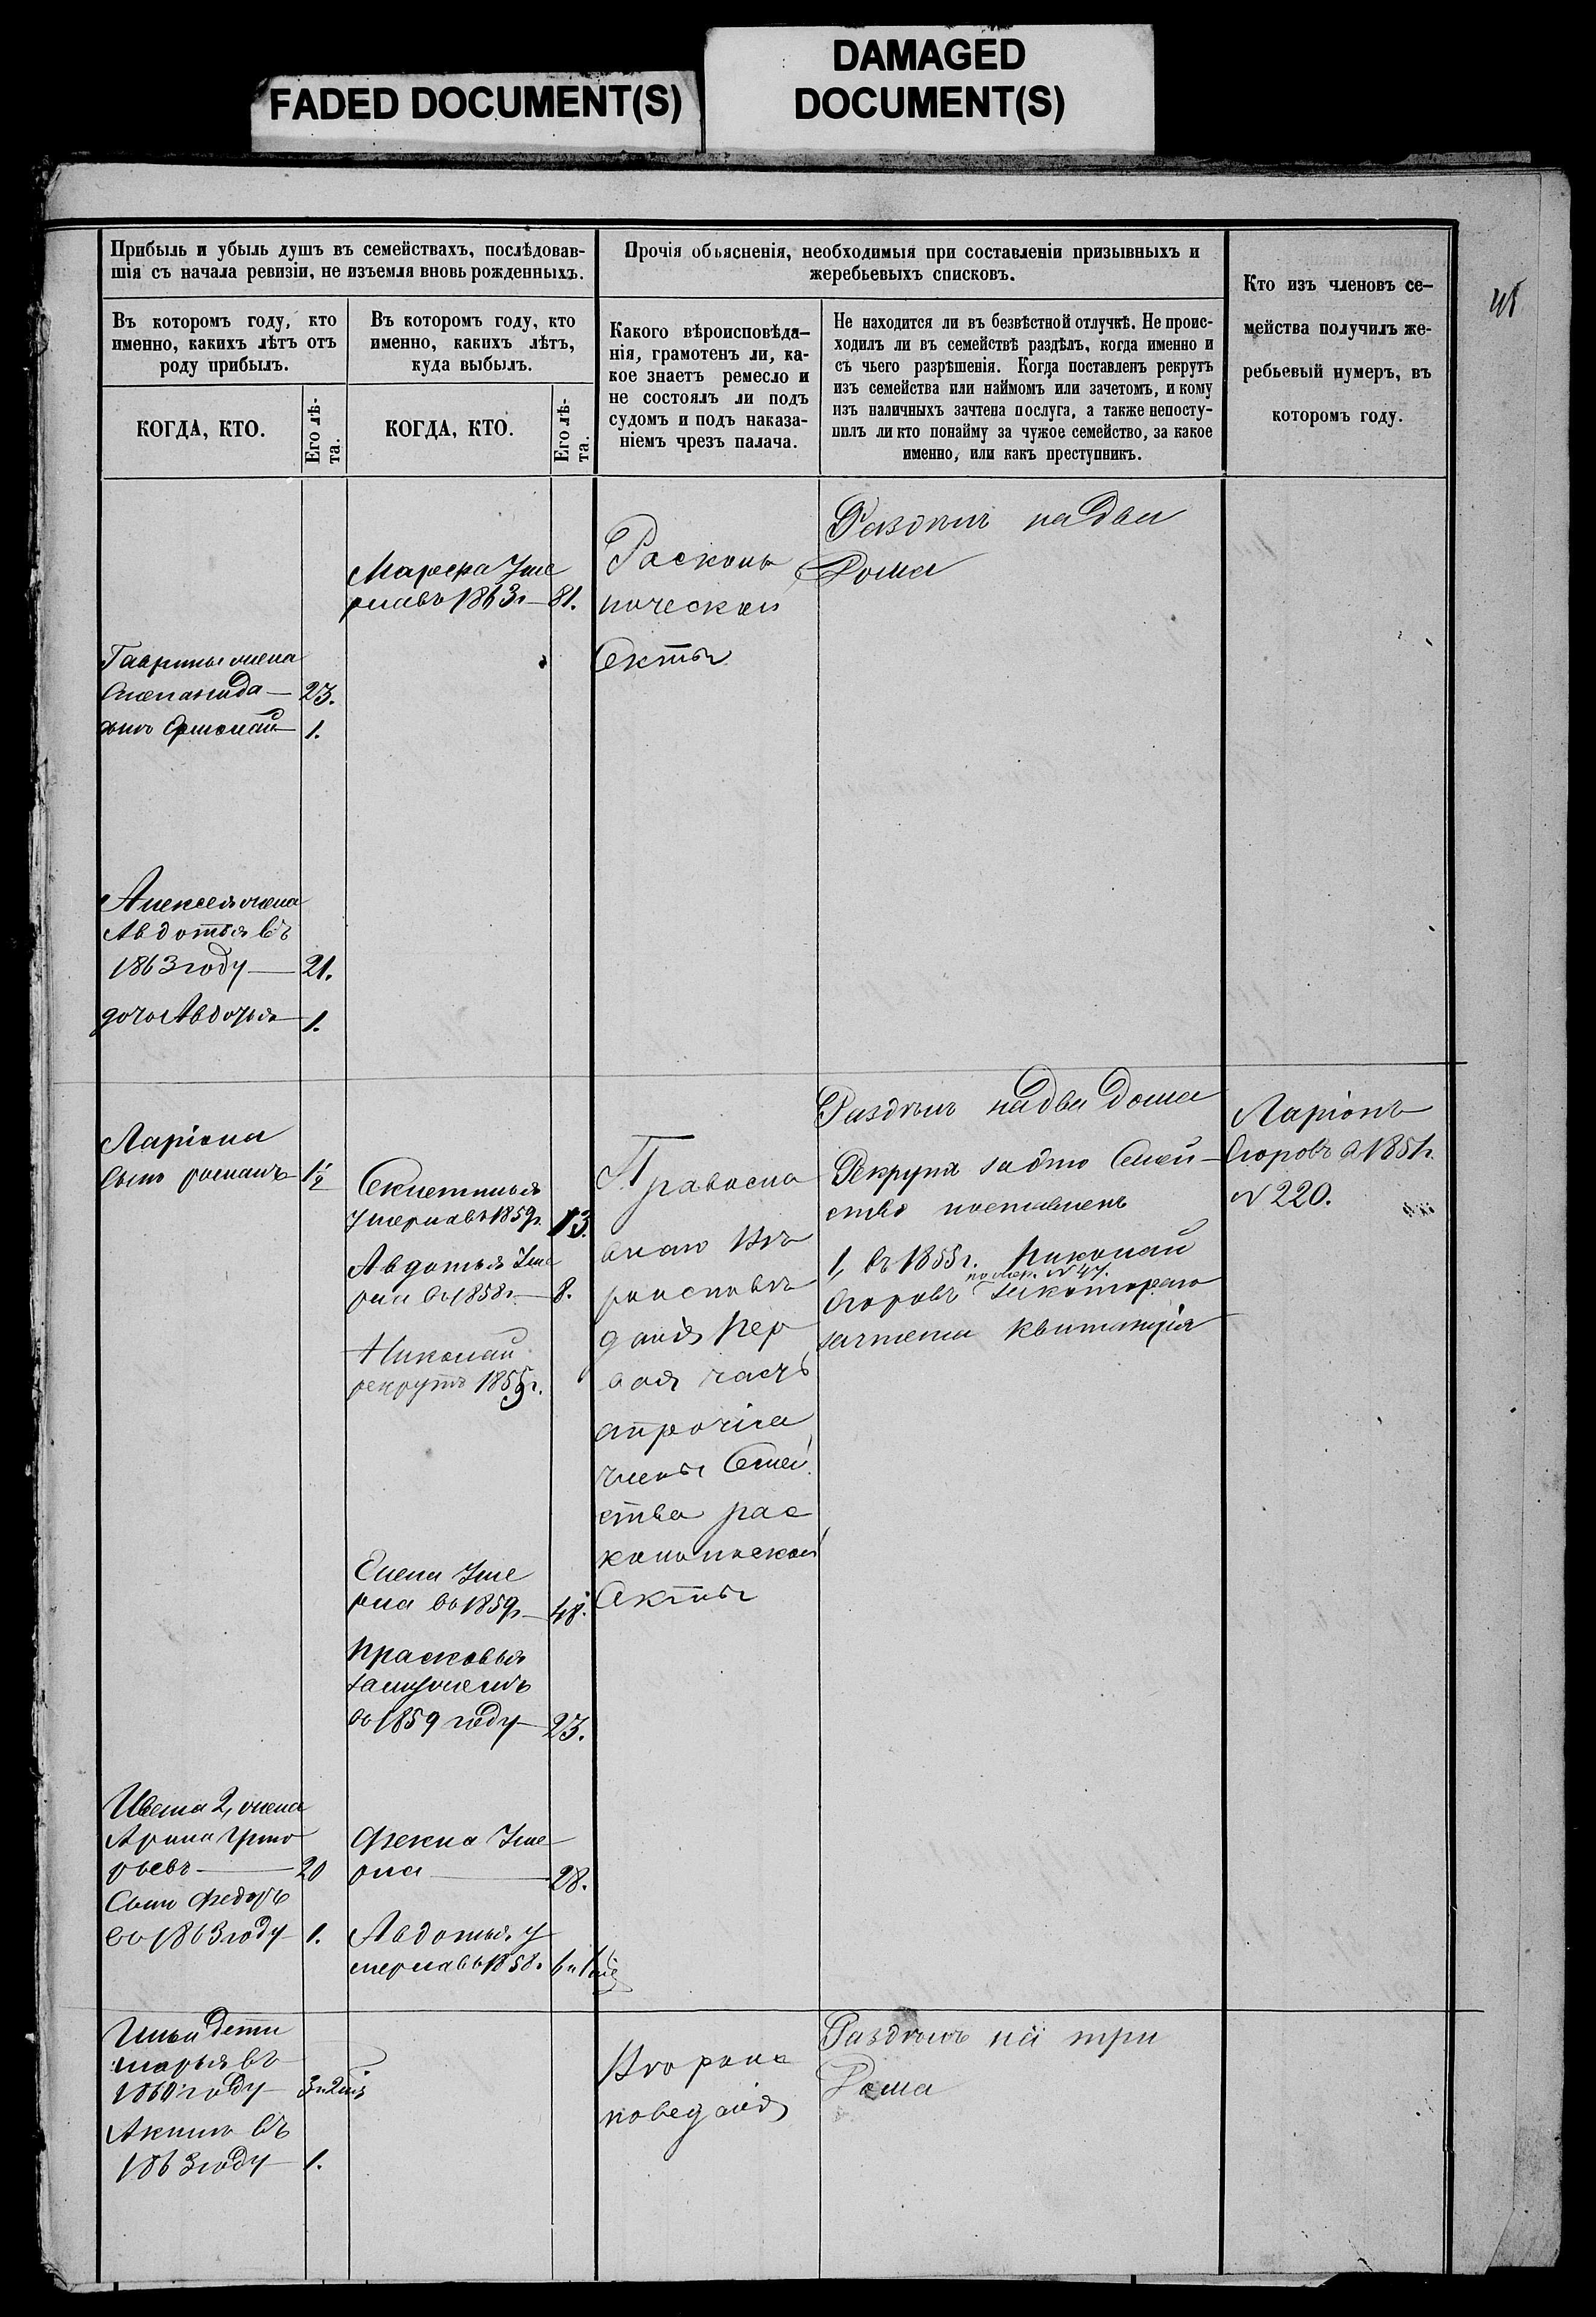 FADED DOCUMENT(S)
DAMAGED
DOCUMENT(S)
Прибыль и убыль душъ въ семействахъ, послѣдовав-
шія съ начала ревизіи, не изъемля вновь рожденныхъ.
Прочія объясненія, необходимыя при составленіи призывныхъ и
жеребьевыхъ списковъ.
Кто изъ членовъ се-
мейства получилъ же-
ребьевый нумеръ, въ
которомъ году.
Въ которомъ году, кто
именно, какихъ лѣтъ отъ
роду прибылъ.
Въ которомъ году, кто
именно, какихъ лѣтъ,
куда выбылъ.
Какого вѣроисповѣда-
нія, грамотенъ ли, ка-
кое знаетъ ремесло и
не состоялъ ли подъ
судомъ и подъ наказа-
ніемъ чрезъ палача.
Не находится ли въ безвѣстной отлучкѣ. Не проис-
ходилъ ли въ семействѣ раздѣлъ, когда именно и
съ чьего разрѣшенія. Когда поставленъ рекрутъ
изъ семейства или наймомъ или зачетомъ, и кому
изъ наличныхъ зачтена послуга, а также непосту-
пилъ ли кто понайму за чужое семейство, за какое
именно, или какъ преступникъ.
КОГДА, КТО.
Его лѣ-
та.
КОГДА, КТО.
Его лѣ-
та.
Марфа Уме
рлавъ 1863г 81.
Расколь
ической
Секты
Раздѣлъ надва
Дома
Гаврилы жена
Степанида 23.
сынъ Ермолай 1.
Алексея жена
Авдотья въ
1863 году 21.
дочь Авдотья 1.
Ларіона
Сынъ романъ 1 1/2
умерлавъ 1859г. 13.
Авдотья Уме
рла въ 1858г. 8.
Николай
рекрутъ 1855г.
Елена Уме
рла въ 1859г 48.
Прасковья
замужемъ
въ 1859 году 23.
Православ
роисповѣ
данія пер
вая часть
апрочіе
члены Семей
ства рас
кольнической
Секты
Раздѣлъ надва дома
Рекрутъ за это Семей
ство поставленъ
1, въ 1855г. Николай
по жер. № 47.
Егоровъ закотораго
зачтена квитанція
Ларіонъ
Егоровъ в 1851г.
№ 220.
Ивана 2, жена
Арина Григо
рьевъ 20
Сынъ Федоръ
въ 1863 году 1.
Фекла Уме
рла 28.
Авдотья у
мерлавъ 1858.
Ильи дети
марья въ
1860 году
Акимъ въ
1863 году 1.
Раздѣлъ на три
Дома